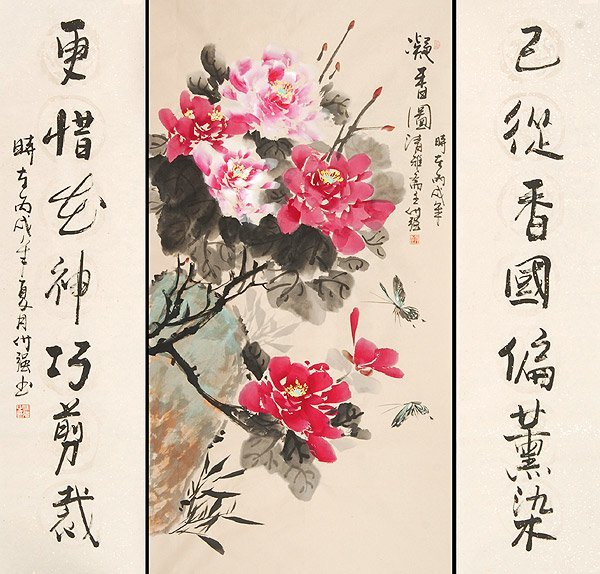 已從香國偏薰染
凝香圖
清雅斋主 强
時在丙戌年
更惜花神巧剪裁
時在丙戌年夏月 强书